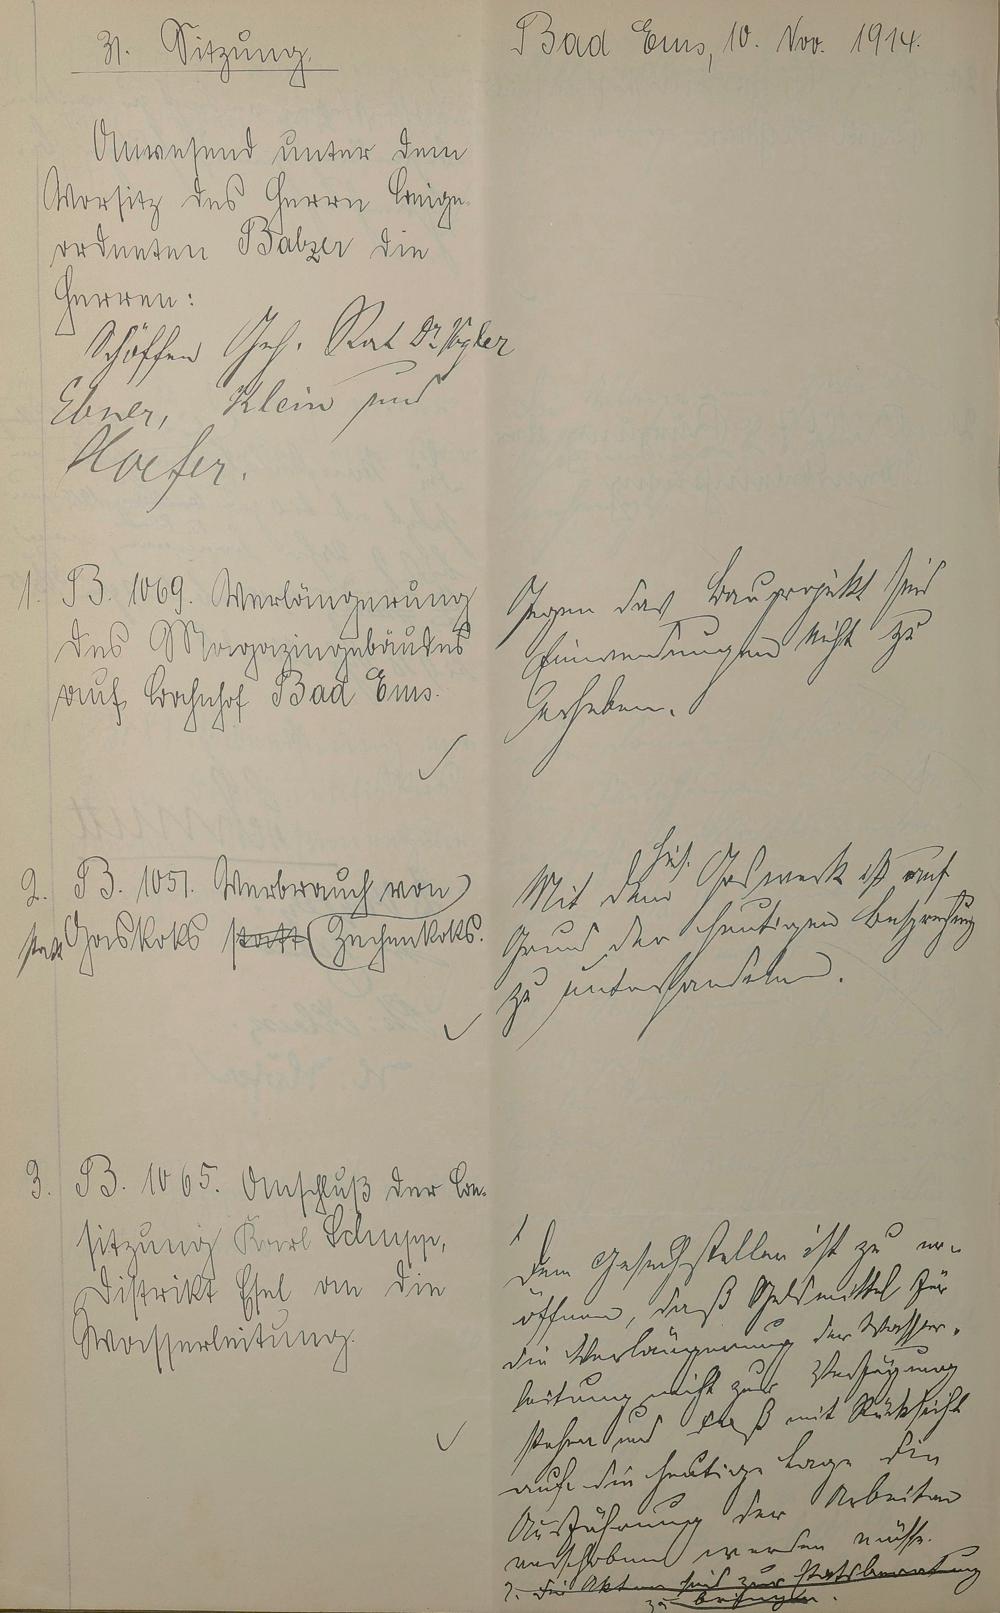 31. Sitzung.
Bad Ems, 10. Nov. 1914.
Anwesend unter dem
Vorsitz des Herrn Beige-
ordneten Balzer die
Herren:
Schöffen Geh. Rat Dr. Vogler
Ebner, Klein und
Hoefer.
1. B. 1069. Verlängerung
des Magazingebäudes
auf Bahnhof Bad Ems.
Gegen das Bauprojekt sind
Einwendungen nicht zu
erheben.
2. B. 1051. Verbrauch von
statt Gaskoks statt Zechenkoks.
Mit dem hies. Gaswerk ist auf
Grund der heutigen Besprechung
zu unterhandeln.
3. B. 1065. Anschluß der Be-
sitzung Karl Schupp,
Distrikt Esel an die
Wasserleitung.
1 Dem Gesuchsteller ist zu er-
öffnen, daß Geldmittel für
die Verlängerung der Wasser-
leitung nicht zur Verfügung
stehen und daß mit Rücksicht
auf die heutige Lage die
Ausführung der Arbeiten
verschoben werden müsse.
2. Die Akten sind zur Etatsberatung
zu bringen.